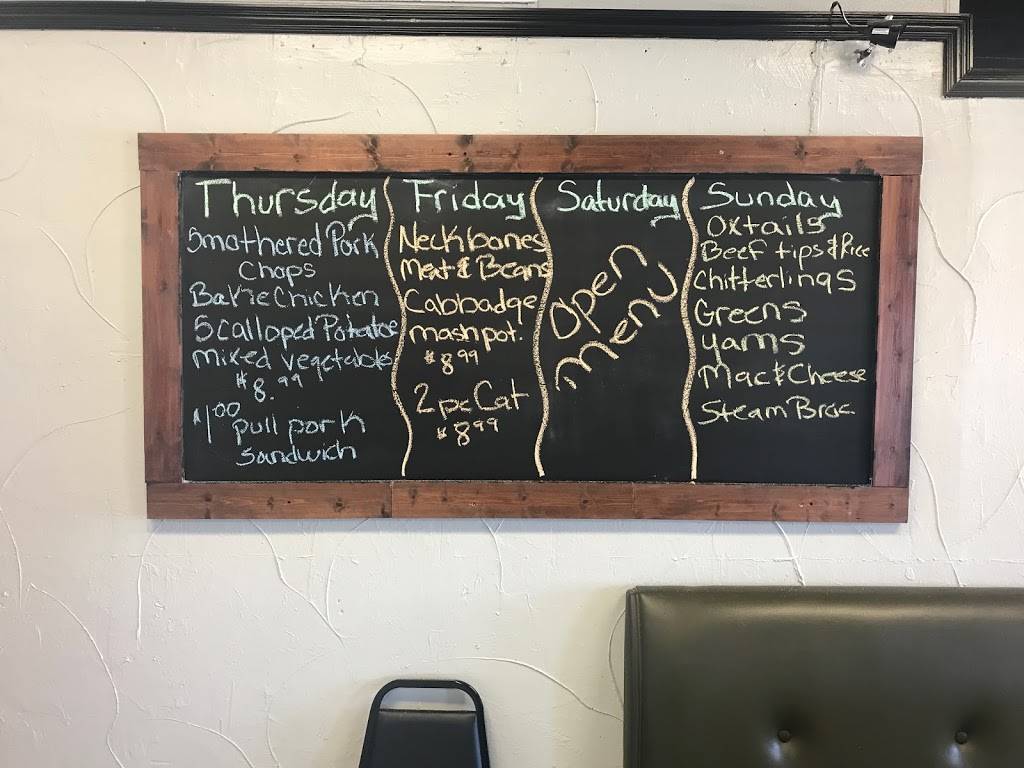 Thursday
Smothered Pork
Chops
Bake Chicken
Scalloped Potatoe
mixed vegetables
$8.99
$1.00 pull pork
sandwich
Friday
Neckbones
Meat & Beans
Cabbadge
mash pot.
$8.99
2pc Cat
$8.99
Saturday
Open
Menu
Sunday
Oxtails
Beef tips & Rice
Chitterlings
Greens
Yams
Mac & Cheese
Steam Broc